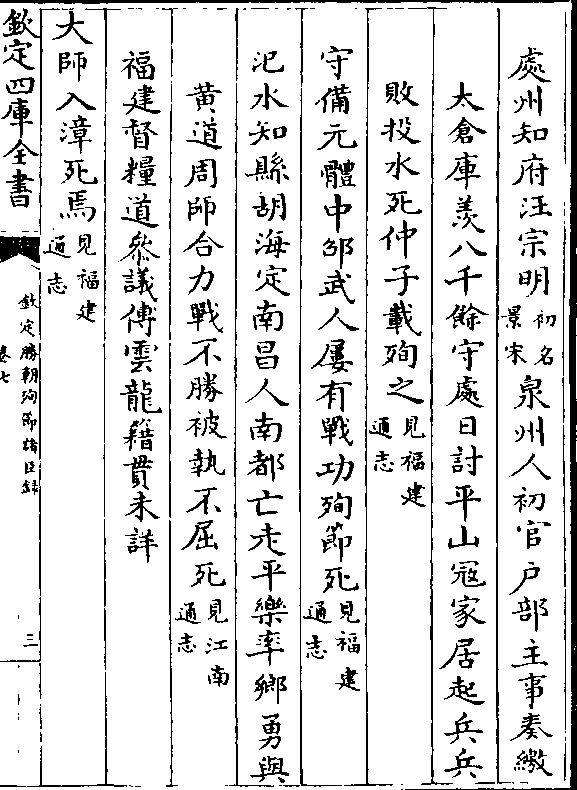 處州知府汪宗明初名景宋泉州人初官户部主事奏繳
太倉庫羡八千餘守處日討平山寇家居起兵兵
敗投水死仲子載殉之見福建通志
守備元體中邵武人屢有戰功殉節死見福建通志
汜水知縣胡海定南昌人南都亡走平樂率鄉勇與
黄道周師合力戰不勝被執不屈死見江南通志
福建督糧道叅議傅雲龍籍貫未詳
大師入漳死焉見福建通志
欽定四庫全書
欽定勝朝殉節諸臣録
卷七
三